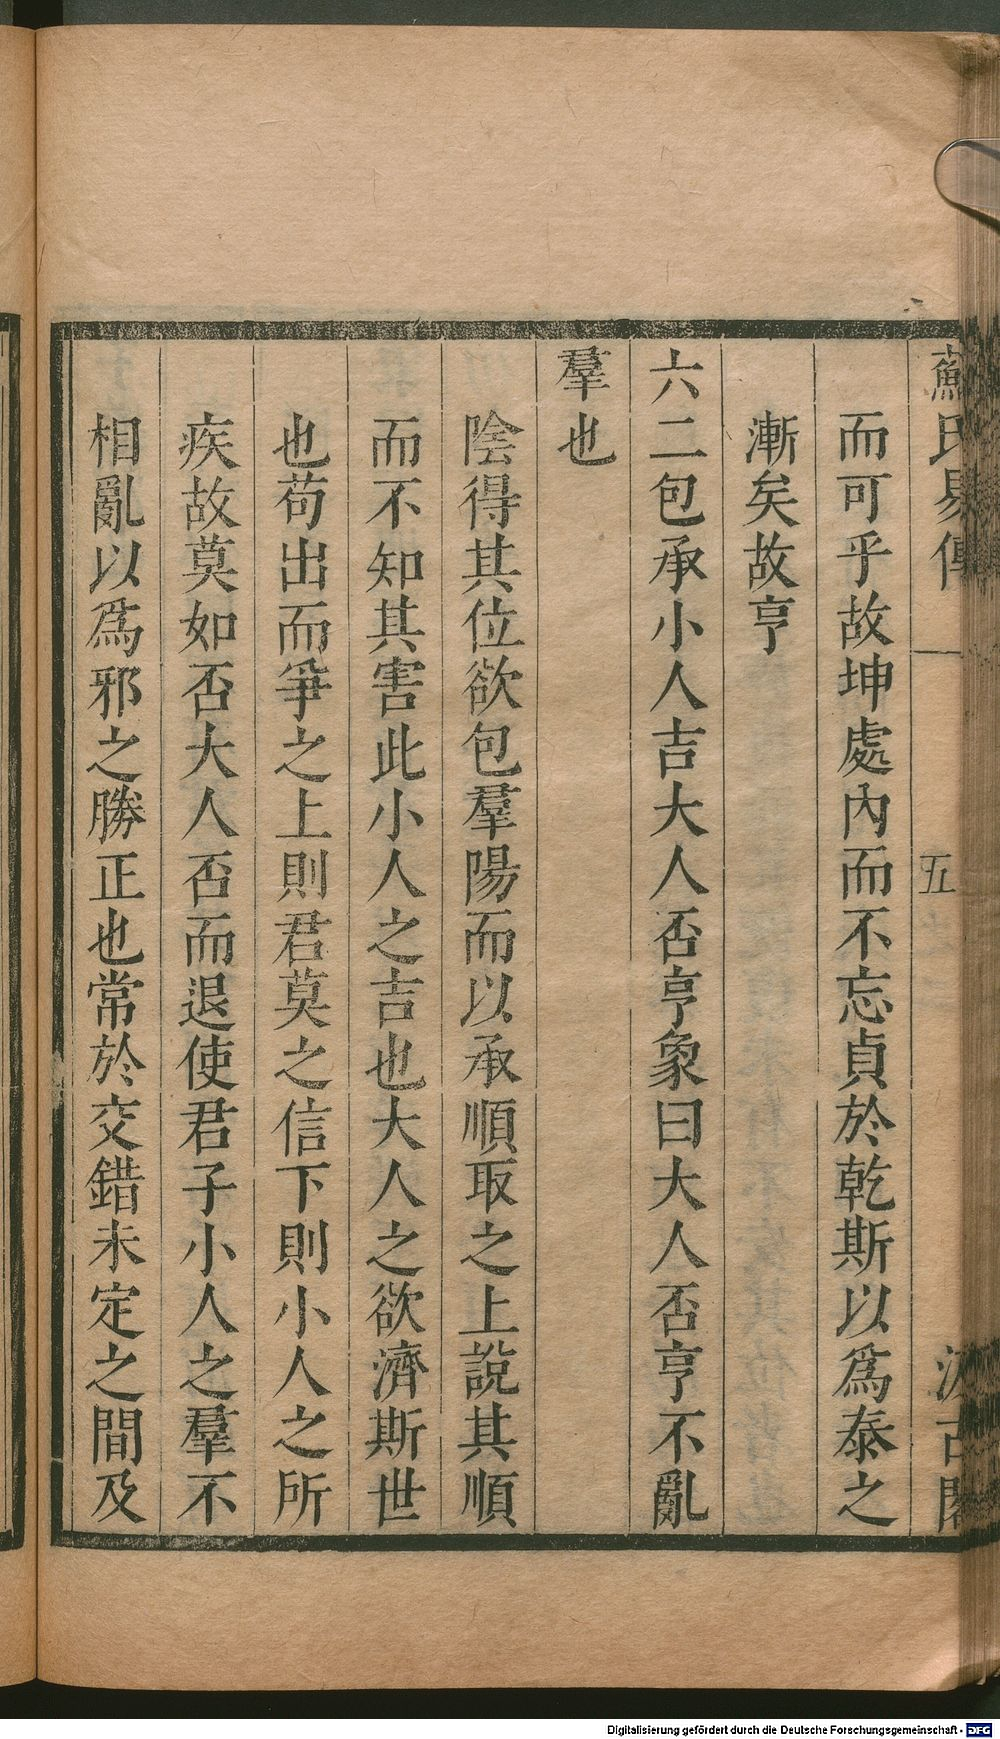 蘇氏易傳 五 汲古閣
而可乎故坤處內而不忘貞於乾斯以爲泰之
漸矣故亨
六二包承小人吉大人否亨象曰大人否亨不亂
羣也
陰得其位欲包羣陽而以承順取之上說其順
而不知其害此小人之吉也大人之欲濟斯世
也苟出而爭之上則君莫之信下則小人之所
疾故莫如否大人否而退使君子小人之羣不
相亂以爲邪之勝正也常於交錯未定之間及
Digitalisierung gefördert durch die Deutsche Forschungsgemeinschaft - DFG